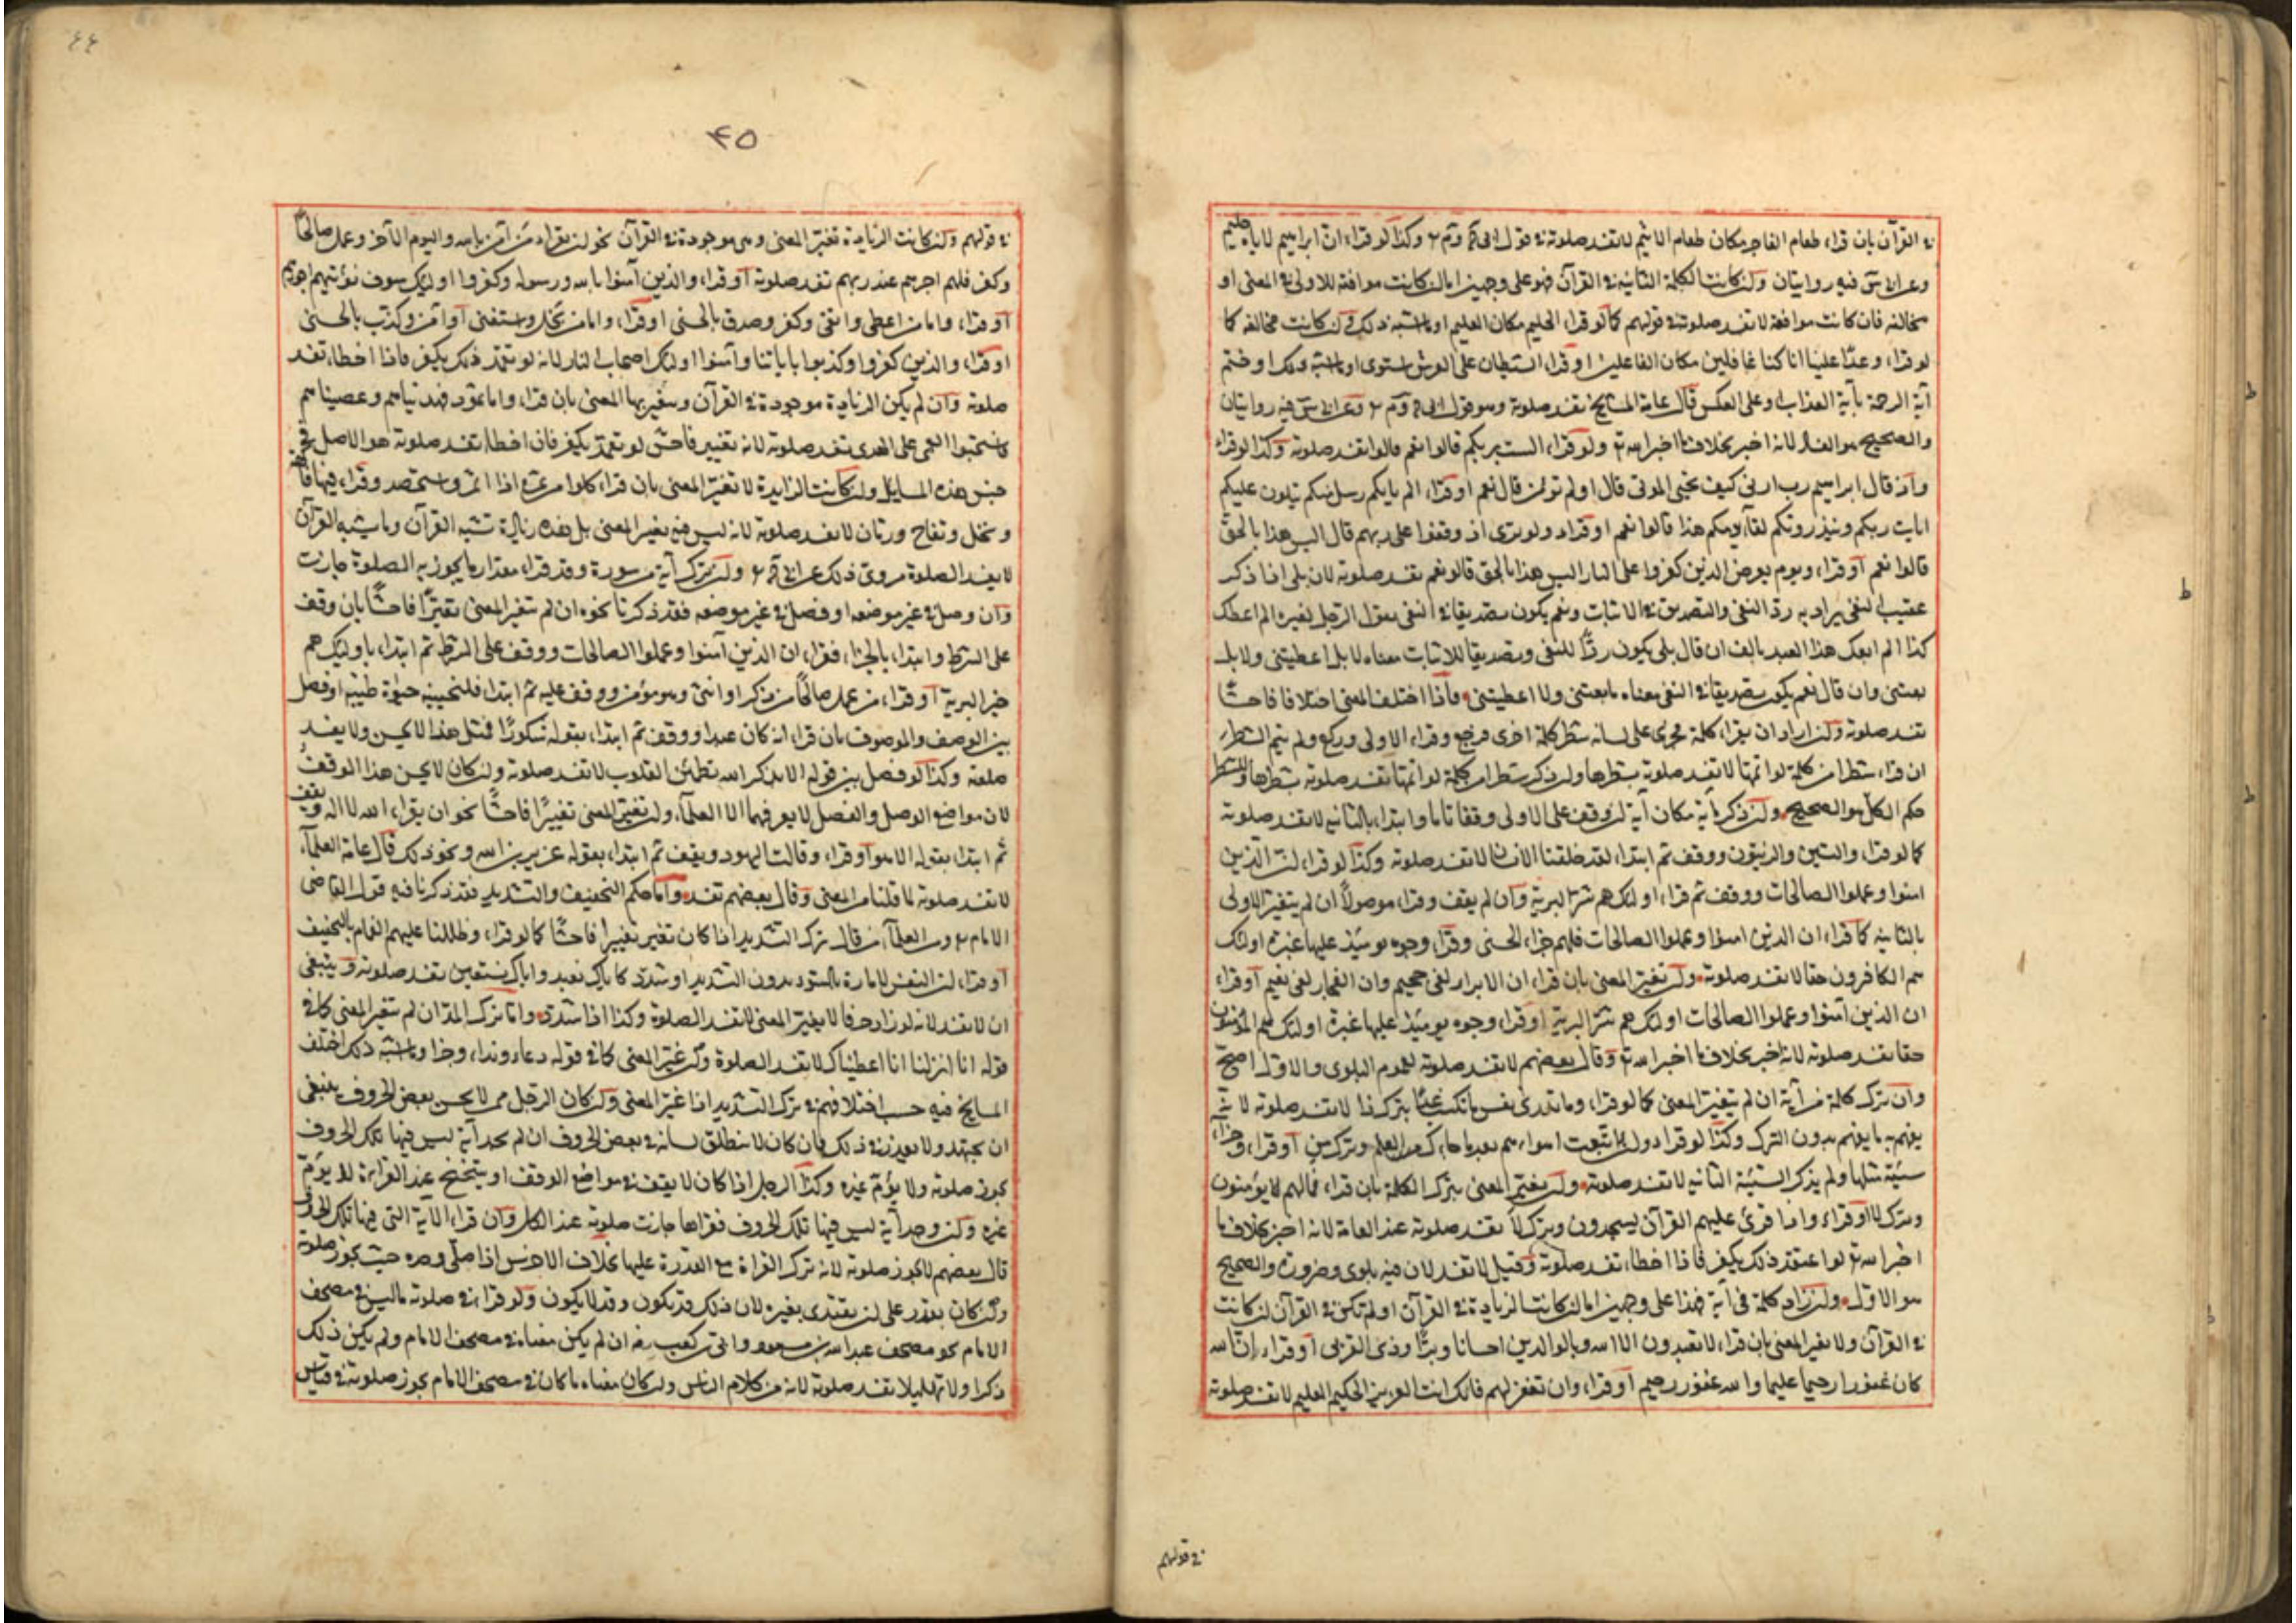 في القرآن بان قراء طعام الفاجر مكان طعام الاثيم لا تفسد صلوته في قول ابى ح وم ر وكذا لو قراء ان ابراهيم لاياه حليم
وعن ابى س فيه روايتان وان كانت الكلمة الثانية في القرآن فهو على وجهين اما ان كانت موافقة للاولى في المعنى او
مخالفة فان كانت موافقة لا تفسد صلوته في قولهم كما لو قراء الحليم مكان العليم او ما اشبه ذلك وان كانت مخالفة كما
لو قراء وعدا علينا انا كنا غافلين مكان الفاعلين او قراء الشيطان على العرش استوى او ما اشبه ذلك او ختم
آية الرحمة بآية العذاب او على العكس قال عامة المشايخ تفسد صلوته وهو قول ابى ح وم ر وعن ابى س فيه روايتان
والصحيح هو الفساد لانه اخبر بخلاف ما اخبر الله تع ولو قراء الست بربكم قالوا نعم قالوا تفسد صلوته وكذا لو قراء
واذ قال ابراهيم رب ارنى كيف تحيى الموتى قال اولم تؤمن قال نعم او قراء الم ياتكم رسل منكم يتلون عليكم
ايات ربكم وينذرونكم لقاء يومكم هذا قالوا نعم او قراء ولو ترى اذ وقفوا على ربهم قال اليس هذا بالحق
قالوا نعم او قراء ويوم يعرض الذين كفروا على النار اليس هذا بالحق قالوا نعم تفسد صلوته لان بلى اذا ذكر
عقيب النفى يراد به رد النفى والتصديق في الاثبات ونعم يكون تصديقا في النفى يقول الرجل لغيره الم اعطك
كذا الم ابعك هذا العبد بالف ان قال بلى يكون ردا للنفى وتصديقا للاثبات معناه لا بل اعطيتنى ولا بل
بعتنى وان قال نعم يكون تصديقا في النفى معناه ما بعتنى ولا اعطيتنى فاذا اختلف المعنى اختلافا فاحشا
تفسد صلوته وان اراد ان يقراء كلمة فجرى على لسانه شطر كلمة اخرى فرجع وقراء الاولى وركع ولم يتم الشطر
ان قراء شطرا من كلمة لو اتمها لا تفسد صلوته بشطرها وان ذكر شطرا من كلمة لو اتمها تفسد صلوته بشطرها وللشطر
حكم الكل هو الصحيح وان ذكر آية مكان آية ان وقف على الاولى وقفا تاما وابتداء بالثانية لا تفسد صلوته
كما لو قراء والتين والزيتون ووقف ثم ابتداء لقد خلقنا الانسان لا تفسد صلوته وكذا لو قراء ان الذين
امنوا وعملوا الصالحات ووقف ثم قراء اولئك هم شر البرية وان لم يقف وقراء موصولا ان لم يتغير الاولى
بالثانية كما قراء ان الذين امنوا وعملوا الصالحات فلهم جزاء الحسنى وقراء وجوه يومئذ عليها غبرة اولئك
هم الكافرون حقا لا تفسد صلوته وان تغير المعنى بان قراء ان الابرار لفى جحيم وان الفجار لفى نعيم او قراء
ان الذين آمنوا وعملوا الصالحات اولئك هم شر البرية او قراء وجوه يومئذ عليها غبرة اولئك هم المؤمنون
حقا تفسد صلوته لانه اخبر بخلاف ما اخبر الله تع وقال بعضهم لا تفسد صلوته لعموم البلوى والاول اصح
وان ترك كلمة من آية ان لم يتغير المعنى كما لو قراء وما تدرى نفس ماتكسب غدا بترك ذا لا تفسد صلوته لا نه
يفهم به ما يفهم بدون الترك وكذا لو قراء ولئن اتبعت اهواءهم بعد ما جاءك من العلم وترك من او قراء وجزاء
سيئة مثلها ولم يذكر السيئة الثانية لا تفسد صلوته وان تغير المعنى بترك الكلمة بان قراء فما لهم لا يؤمنون
وترك لا او قراء واذا قرئ عليهم القرآن يسجدون وترك لا تفسد صلوته عند العامة لانه اخبر بخلاف ما
اخبر الله تع لو اعتقد ذلك يكفر فاذا اخطاء تفسد صلوته وقيل لا تفسد لان فيه بلوى وضرورة والصحيح
هو الاول وان زاد كلمة فى آية فهذا على وجهين اما ان كانت الزيادة في القرآن او لم تكن في القرآن ان كانت
في القرآن ولا تغير المعنى بان قراء لا تعبدون الا الله وبالوالدين احسانا وبرا وذى القربى او قراء ان الله
كان غفورا رحيما عليما والله غفور رحيم او قراء وان تغفر لهم فانك انت العزيز الحكيم العليم لا تفسد صلوته
في قولهم
٤٤
٤٥
في قولهم وان كانت الزيادة تغير المعنى وهى موجودة في القرآن نحو ان يقراء من آمن بالله واليوم الآخر وعمل صالحا
وكفر فلهم اجرهم عند ربهم تفسد صلوته او قراء والذين آمنوا بالله ورسوله وكفروا اولئك سوف نؤتيهم اجورهم
او قراء واما من اعطى واتقى وكفر وصدق بالحسنى او قراء واما من بخل واستغنى وآمن وكذب بالحسنى
او قراء والذين كفروا وكذبوا باياتنا وآمنوا اولئك اصحاب النار لانه لو تعمد ذلك يكفر فاذا اخطاء تفسد
صلوته وان لم يكن الزيادة موجودة في القرآن ويتغير بها المعنى بان قراء واما ثمود فهديناهم وعصيناهم
فاستحبوا العمى على الهدى تفسد صلوته لانه تغيير فاحش لو تعمد يكفر فان اخطاء تفسد صلوته هو الاصل في
جنس هذه المسايل وان كانت الزايدة لا تغير المعنى بان قراء كلوا من ثمره اذا اثمر واستحصد وقراء فيها فاكهة
ونخل وتفاح ورمان لا تفسد صلوته لانه ليس فيه تغير المعنى بل هذه زيادة تشبه القرآن وما يشبه القرآن
لا يفسد الصلوة مروى ذلك عن ابى ح ر وان ترك آية من سورة وقد قراء مقدار ما يجوز به الصلوة جازت
وان وصل في غير موضعه او فصل في غير موضعه فقد ذكرنا نحوه ان لم يتغير المعنى تغيرا فاحشا بان وقف
على الشرط وابتداء بالجزاء فقراء ان الذين آمنوا وعملوا الصالحات ووقف على الشرط ثم ابتداء باولئك هم
خير البرية او قراء من عمل صالحا من ذكر او انثى وهو مؤمن ووقف عليه ثم ابتداء فلنحيينه حيوة طيبة او فصل
بين الوصف والموصوف بان قراء انه كان عبدا ووقف ثم ابتداء بقوله شكورا فمثل هذا لا يحسن ولا يفسد
صلوته وكذا لو فصل بين قوله الا بذكر الله تطمئن القلوب لا تفسد صلوته وان كان لا يحسن هذا الوقف
لان مواضع الوصل والفصل لا يعرفها الا العلماء وان تغير المعنى تغييرا فاحشا نحو ان يقراء الله لا اله ويقف
ثم ابتداء بقوله الا هو او قراء وقالت اليهود ويقف ثم ابتداء بقوله عزير بن الله ونحو ذلك قال عامة العلماء
لا تفسد صلوته لما قلنا من المعنى وقال بعضهم تفسد واما حكم التخفيف والتشديد فقد ذكرنا فيه قول القاضى
الامام ر ومن العلماء من قال ترك التشديد اذا كان تغير تغييرا فاحشا كما لو قراء وظللنا عليهم الغمام بالتخفيف
او قراء ان النفس لامارة بالسوء بدون التشديد او شدد كاياك نعبد واياك نستعين تفسد صلوته وينبغى
ان لا تفسد لانه لو زاد حرفا لا يغير المعنى لا تفسد الصلوة وكذا اذا شدد واما ترك المد ان لم يتغير المعنى كما في
قوله انا انزلنا انا اعطيناك لا تفسد الصلوة وان غير المعنى كما في قوله دعاء ونداء وجزاء وما اشبه ذلك اختلف
المشايخ فيه حسب اختلافهم في ترك التشديد اذا غير المعنى وان كان الرجل ممن لا يحسن بعض الحروف ينبغى
ان يجتهد ولا يعذر في ذلك فان كان لا ينطلق لسانه في بعض الحروف ان لم يجد آية ليس فيها تلك الحروف
يجوز صلوته ولا يؤم غيره وكذا الرجل اذا كان لا يقف في مواضع الوقف او يتنحنح عند القراءة لا يؤم
غيره وان وجد آية ليس فيها تلك الحروف فقراها جازت صلوته عند الكل وان قراء الاية التى فيها تلك الحروف
قال بعضهم لا يجوز صلوته لانه ترك القراءة مع القدرة عليها بخلاف الاخرس اذا صلى وحده حيث يجوز صلوته
وان كان يقدر على ان يقتدى بغيره لان ذلك قد يكون وقد لا يكون ولو قراء في صلوته ما ليس في مصحف
الامام نحو مصحف عبد الله بن مسعود وابى بن كعب رضه ان لم يكن معناه في مصحف الامام ولم يكن ذلك
ذكرا ولا تهليلا تفسد صلوته لانه من كلام الناس وان كان معناه ما كان في مصحف الامام يجوز صلوته في قياس